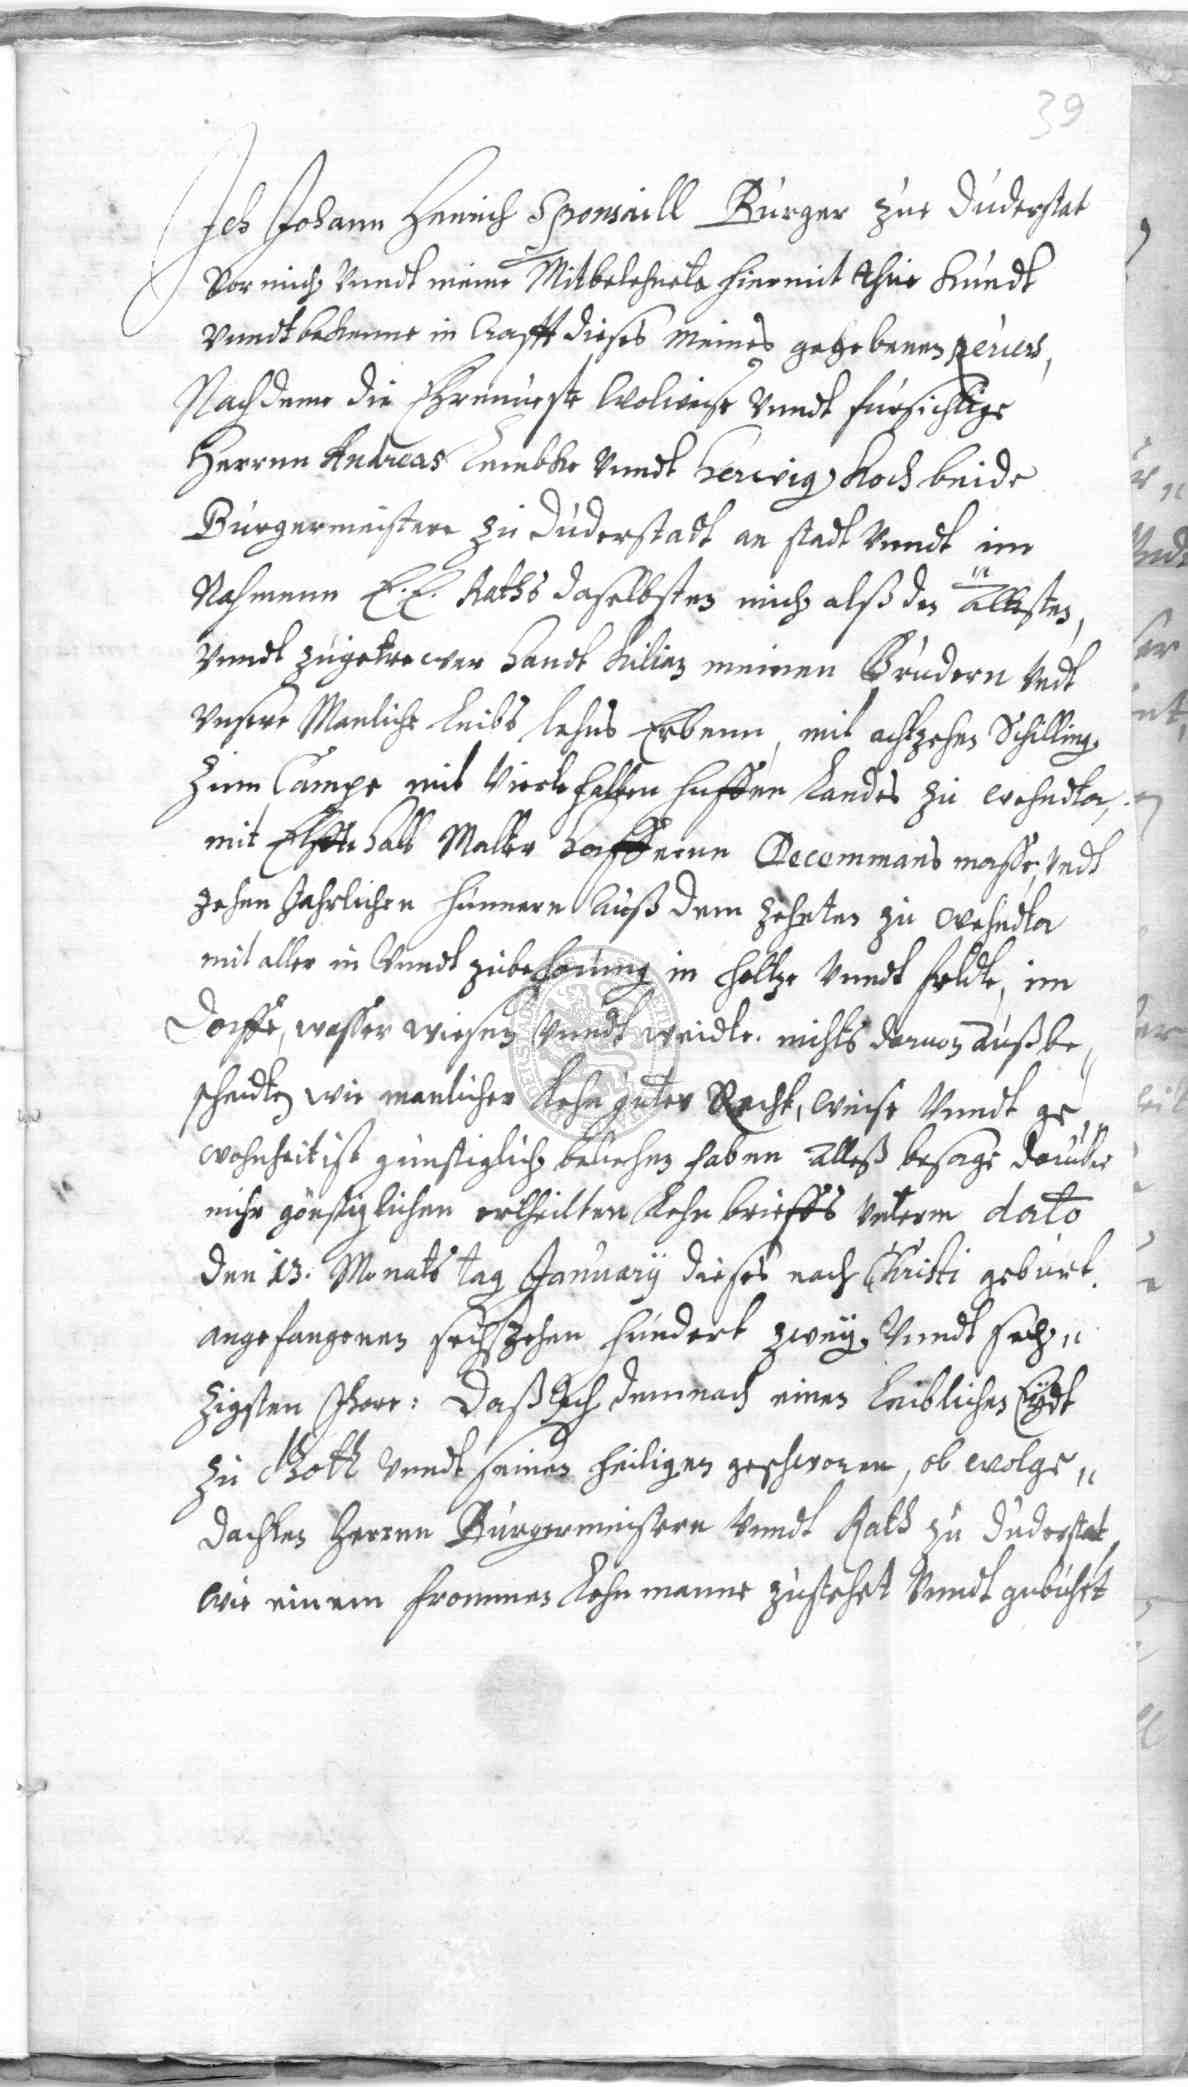 39
Ich Johann Henrich Sponsaill Bürger zue Duderstat
Vor mich Vundt meine Mitbelehnete hiermit thue kundt
Vundt bekenne in Crafft dieses meines gegebenen reuers,
Nachdeme die Ehrnueste Wolweise Vundt fursichtige
Herrnn Andreas Lembke Vundt Herwig Koch beide
Bürgermeistere zu Duderstadt an stadt Vundt im
Nahmenn E. E. Raths daselbsten mich alß den ältesten,
Vundt zugetrewer handt Kilian meinen Brudern Vndt
Vnsere Manliche Leibs lehns Erbenn, mit achtzehen Schilling
Zum Campe mit Viertehalben huffen Landes zu wehndta,
mit Elffte halb Malter haffernn Decemmans masse, Vndt
zehen Jahrlichen hünnern Auß dem zehnten zu wehndta
mit aller in Vundt zubehorung in holtze Vundt felde, im
Dorffe, wasser wiesen Vundt weidte. nichts daruon außbe„
scheidten wie manlicher Lehn guter Recht, weise Vundt ge„
wohnheit ist günstiglich beliehen haben alleß besage darüber
mihr günstiglichen ertheilten Lehn brieffs vnterm dato
den 13. Monats tag January dieses nach Christi geburt
angefangenen sechszehen hundert zwey Vundt sech„
zigsten Jhare: Daß Ich demnach einen Leiblichen Eydt
zu Goth Vundt seinen heiligen geschworen, ob wolge„
dachten Herrnn Bürgermeistern Vundt Rath zu Duderstat
wie einem frommen Lehn manne zustehet Vundt gebühret